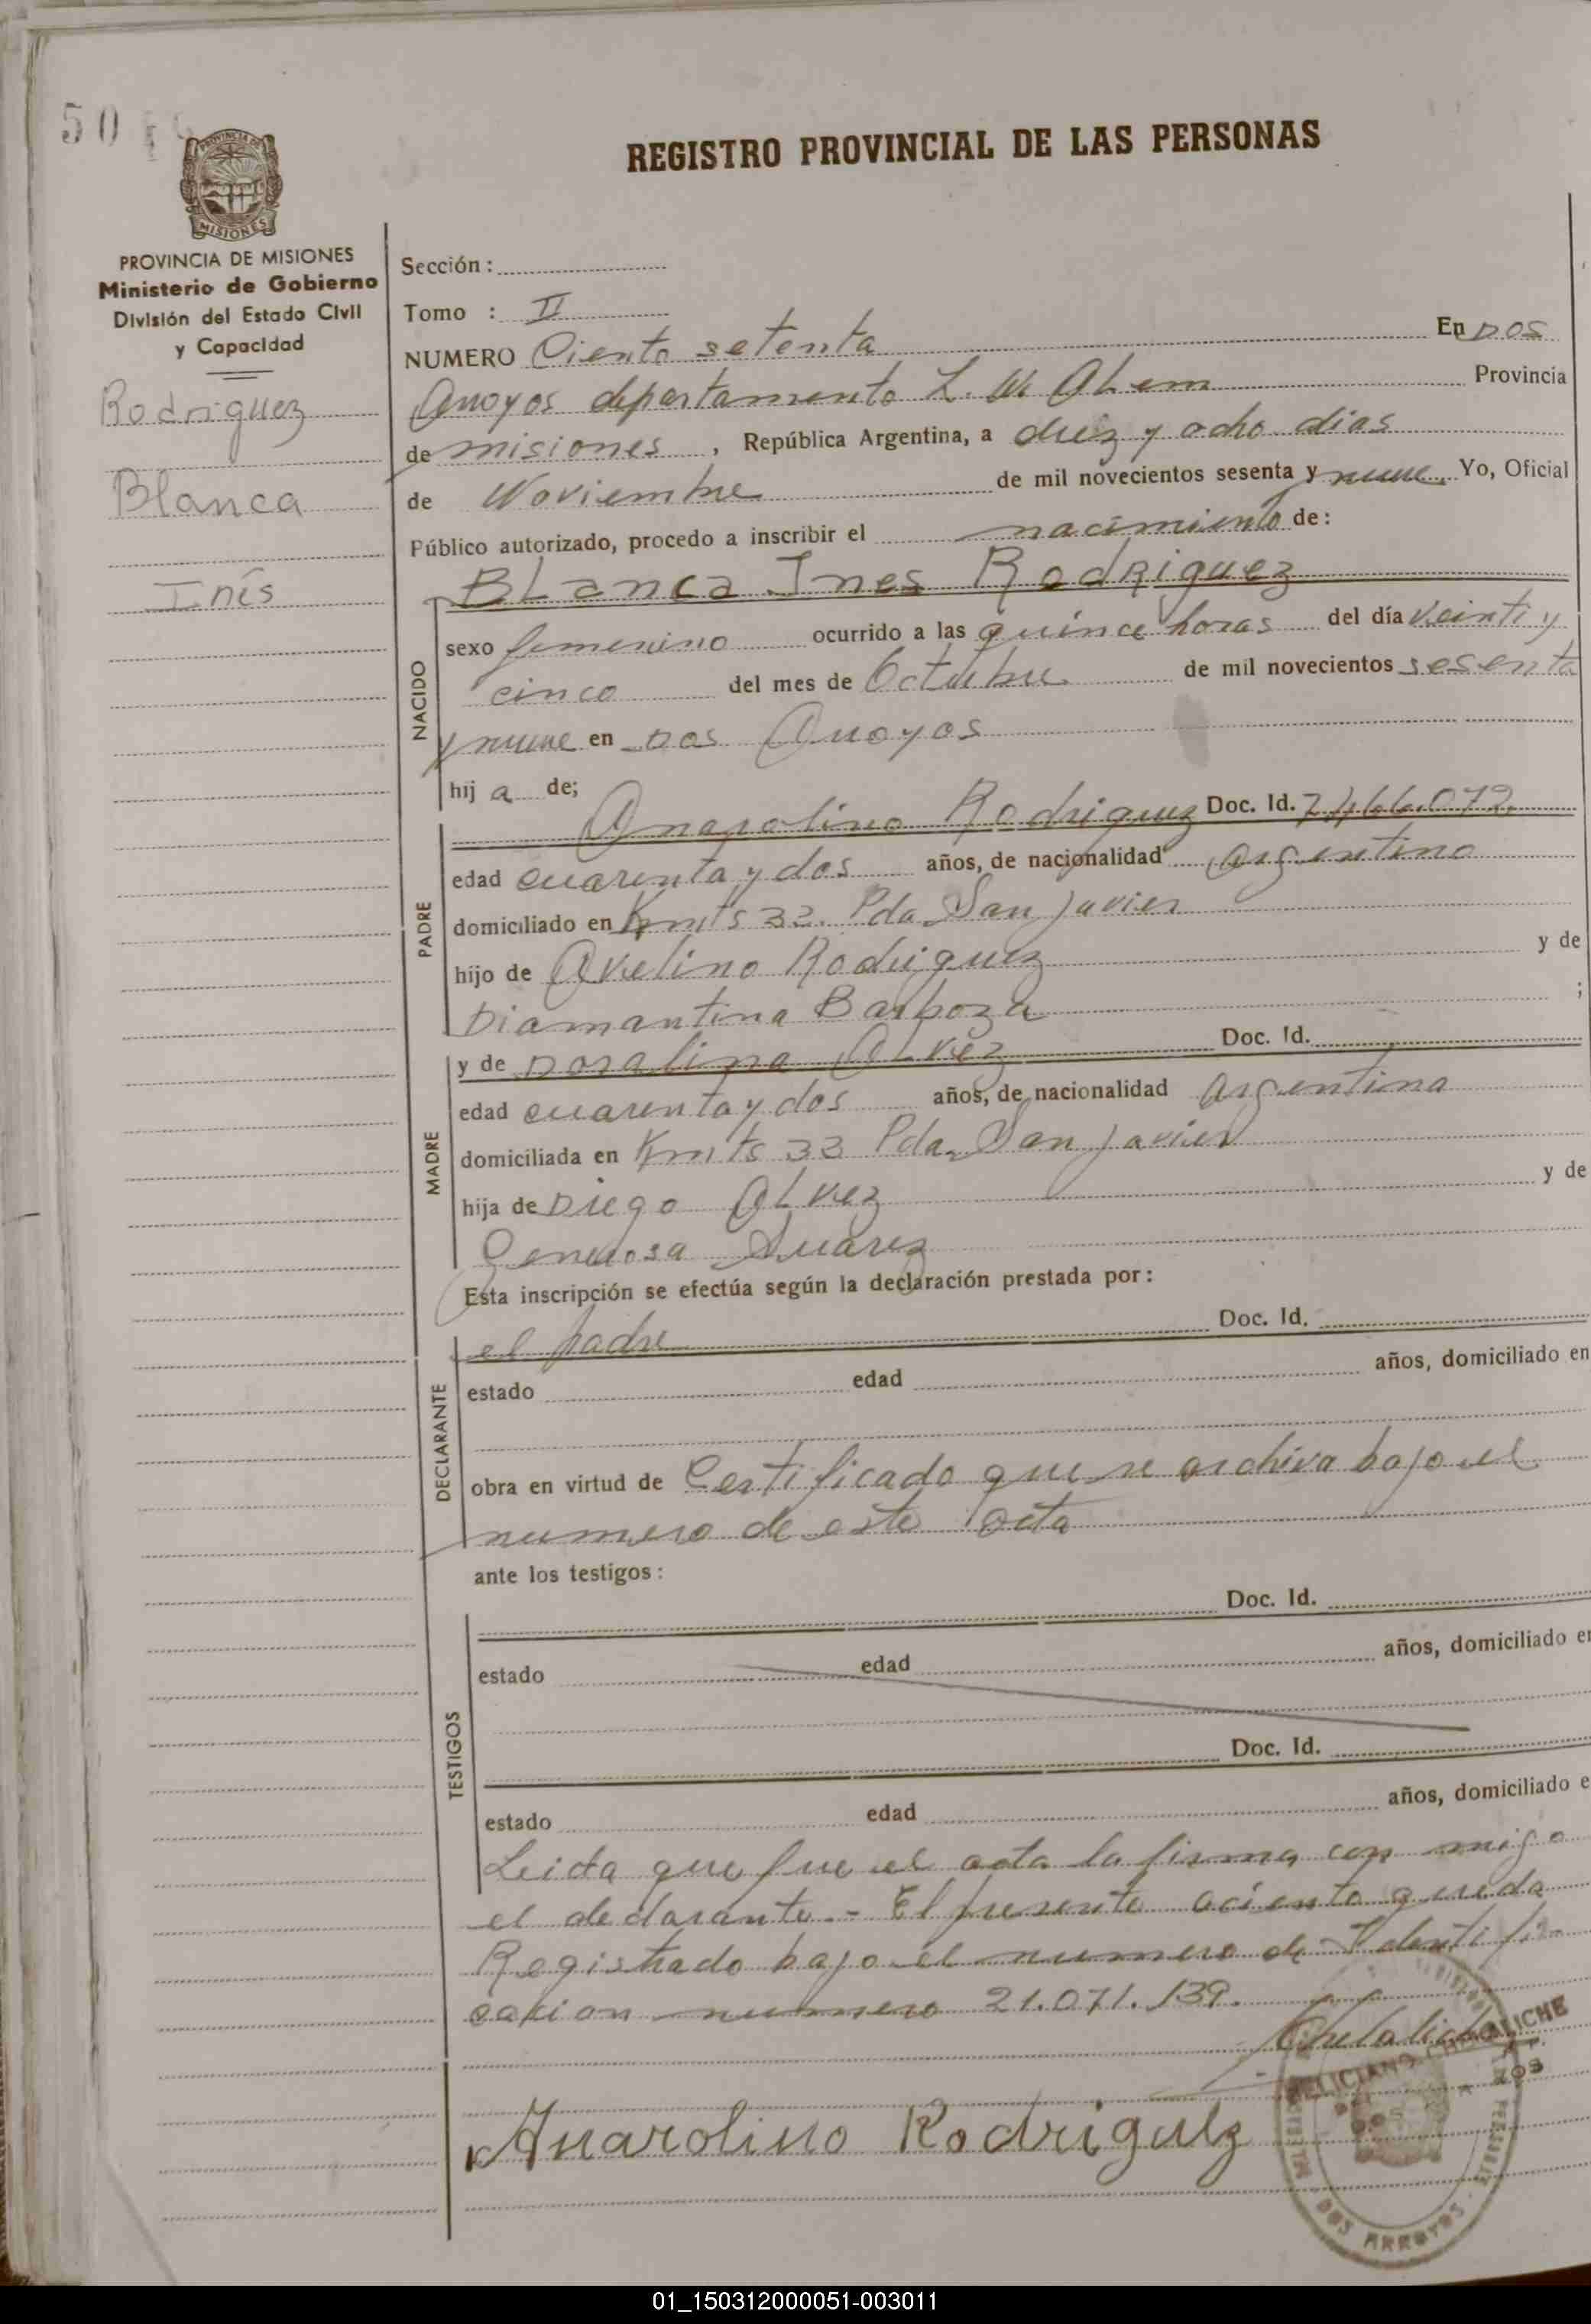 50
REGISTRO PROVINCIAL DE LAS PERSONAS
PROVINCIA DE MISIONES
MISIONES
PROVINCIA DE MISIONES
Ministerio de Gobierno
División del Estado Civil
y Capacidad
Rodriguez
Blanca
Inés
Sección:
Tomo : II
NUMERO Ciento setenta En Dos
Arroyos departamento L. N. Alem Provincia
de misiones, República Argentina, a diez y ocho dias
de Noviembre de mil novecientos sesenta y nueve Yo, Oficial
Público autorizado, procedo a inscribir el nacimiento de:
BLanca Ines Rodriguez
NACIDO
sexo femenino ocurrido a las quince horas del día veinti y
cinco del mes de Octubre de mil novecientos sesenta
y nueve en Dos Arroyos
hij a de;
PADRE
Anarolino Rodriguez Doc. Id. 7.466.072.
edad cuarenta y dos años, de nacionalidad argentino
domiciliado en Kmts 32. Pda San Javier
hijo de Avelino Rodriguez y de
Diamantina Barboza ;
MADRE
y de Doralina ALvez Doc. Id.
edad cuarenta y dos años, de nacionalidad argentina
domiciliada en Kmts 33 Pda San Javier
hija de Diego ALvez y de
Generosa Suarez
Esta inscripción se efectúa según la declaración prestada por:
DECLARANTE
el padre Doc. Id.
estado edad años, domiciliado en
obra en virtud de Certificado que se archiva bajo el
numero de este acta
ante los testigos:
TESTIGOS
Doc. Id.
estado edad años, domiciliado en
Doc. Id.
estado edad años, domiciliado e
Leida que fue el acta la firma con migo
el declarante.- El presente aciento queda
Registrado bajo el numero de Identifi-
cacion numero 21.071.139.
FELICIANO CHELALICHE
Anarolino Rodriguez
DOS ARROYOS
01_150312000051-003011